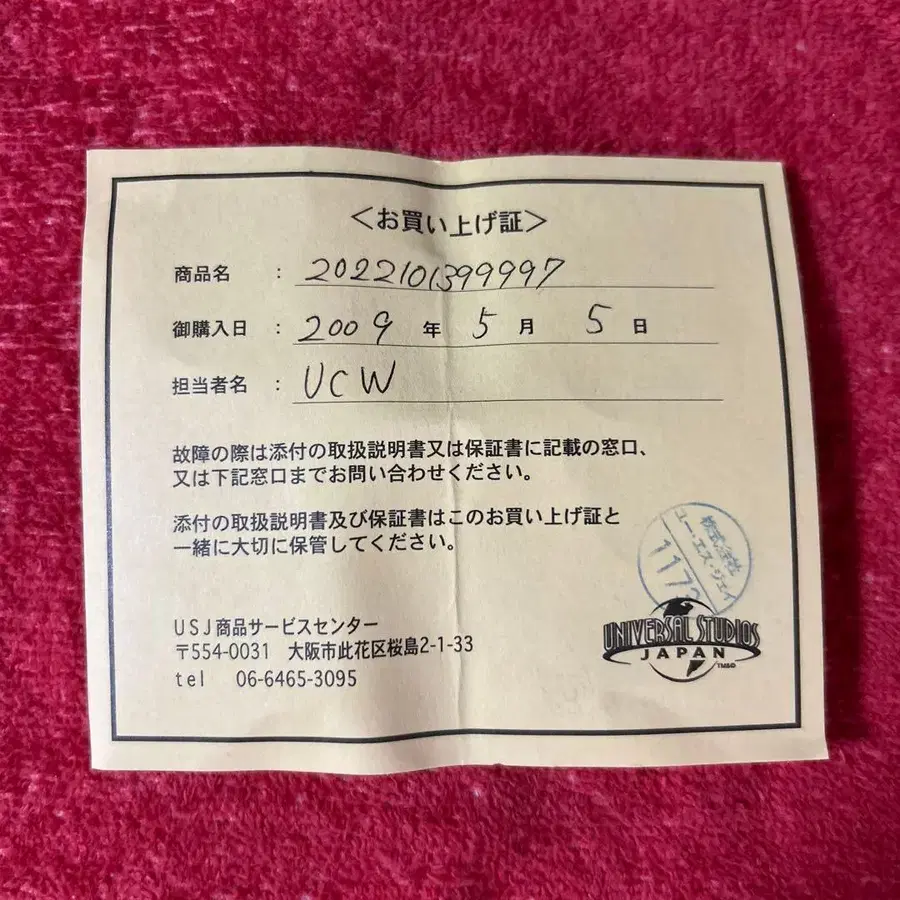 <お買い上げ証>
商品名 : 2022101399997
御購入日 : 2009 年 5 月 5 日
担当者名 : UCW
故障の際は添付の取扱説明書又は保証書に記載の窓口、
又は下記窓口までお問い合わせください。
添付の取扱説明書及び保証書はこのお買い上げ証と
一緒に大切に保管してください。
株式会社
ユー・エス・ジェイ
117
USJ商品サービスセンター
〒554-0031 大阪市此花区桜島2-1-33
tel 06-6465-3095
UNIVERSAL STUDIOS
JAPAN